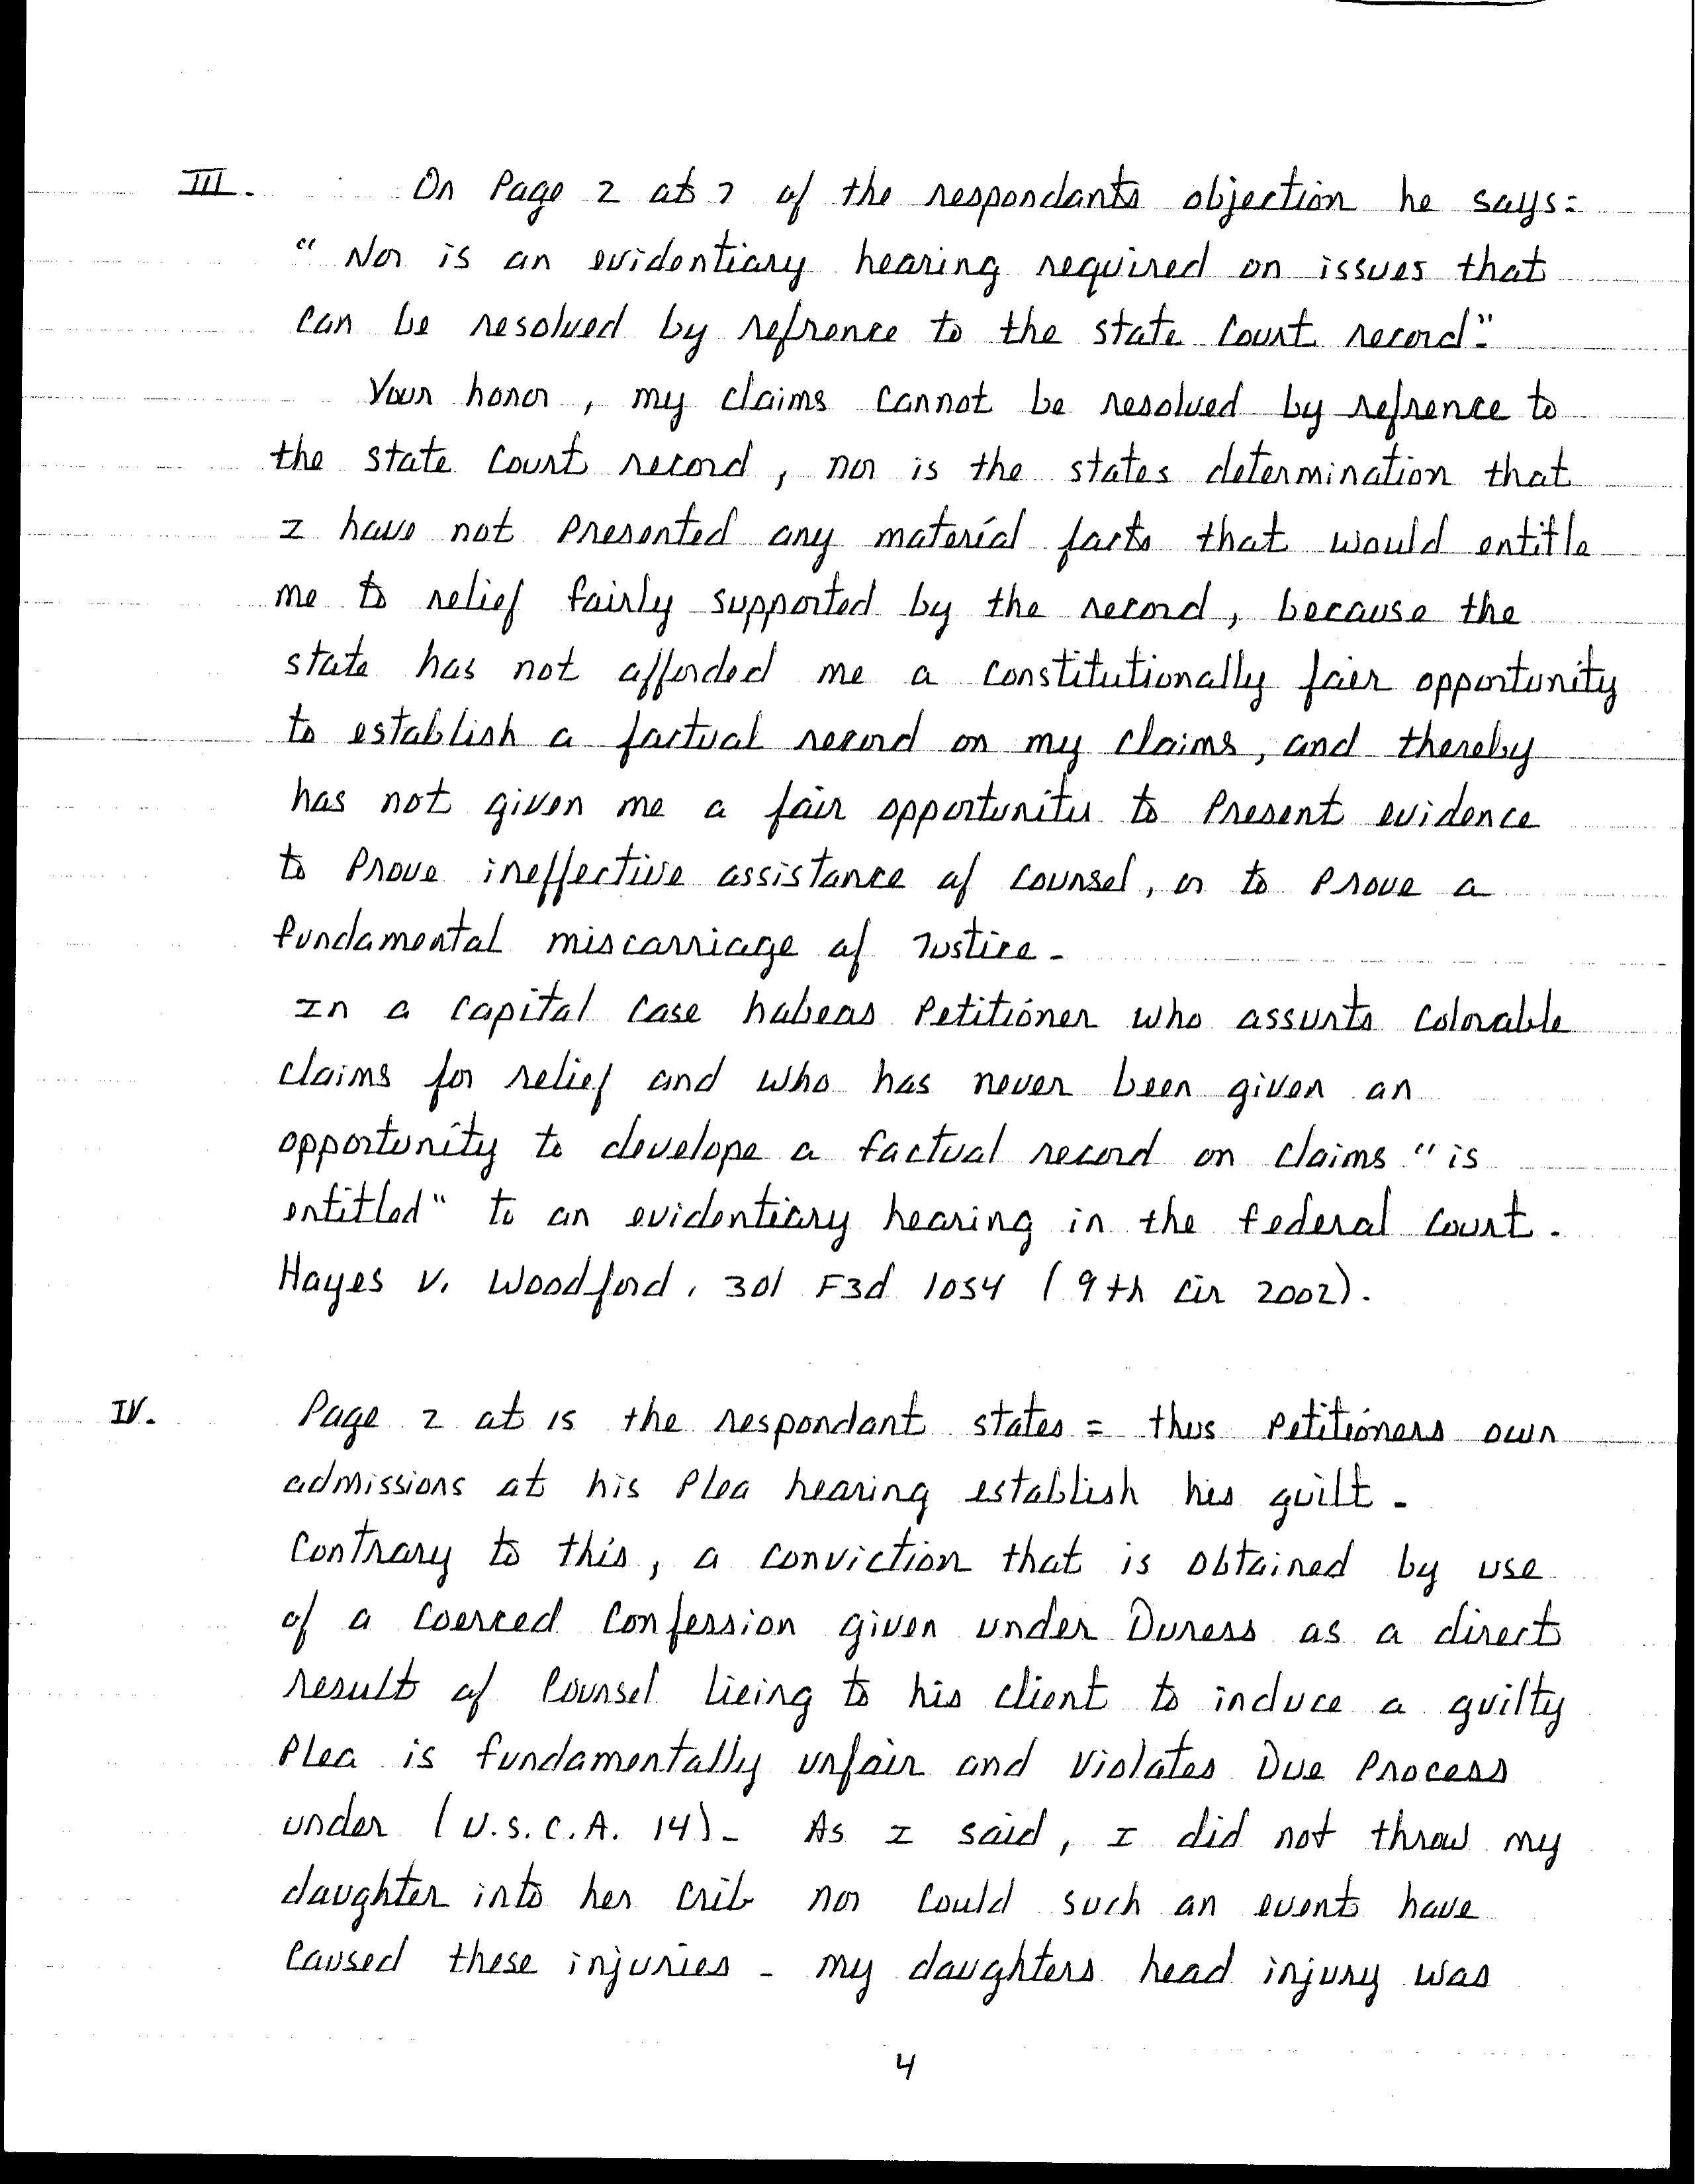 III. On Page 2 at 7 of the respondants objection he says:
" Nor is an evidentiary hearing required on issues that
can be resolved by refrence to the state Court record".
Your honor, my claims cannot be resolved by refrence to
the state Court record, nor is the states determination that
I have not Presented any material facts that would entitle
me to relief fairly supported by the record, because the
state has not afforded me a constitutionally fair opportunity
to establish a factual record on my claims, and thereby
has not given me a fair opportunity to Present evidence
to Prove ineffective assistance of counsel, or to Prove a
fundamental miscarriage of Justice.
In a capital case habeas Petitioner who assurts colorable
claims for relief and who has never been given an
opportunity to develope a factual record on claims "is
entitled" to an evidentiary hearing in the federal court.
Hayes v. Woodford, 301 F3d 1054 (9th Cir 2002).
IV. Page 2 at 15 the respondant states = thus Petitioners own
admissions at his Plea hearing establish his guilt.
Contrary to this, a conviction that is obtained by use
of a coerced Confession given under Duress as a direct
result of Counsel lieing to his client to induce a guilty
Plea is fundamentally unfair and violates Due Process
under (U.S.C.A. 14). As I said, I did not throw my
daughter into her crib nor could such an event have
caused these injuries. my daughters head injury was
4